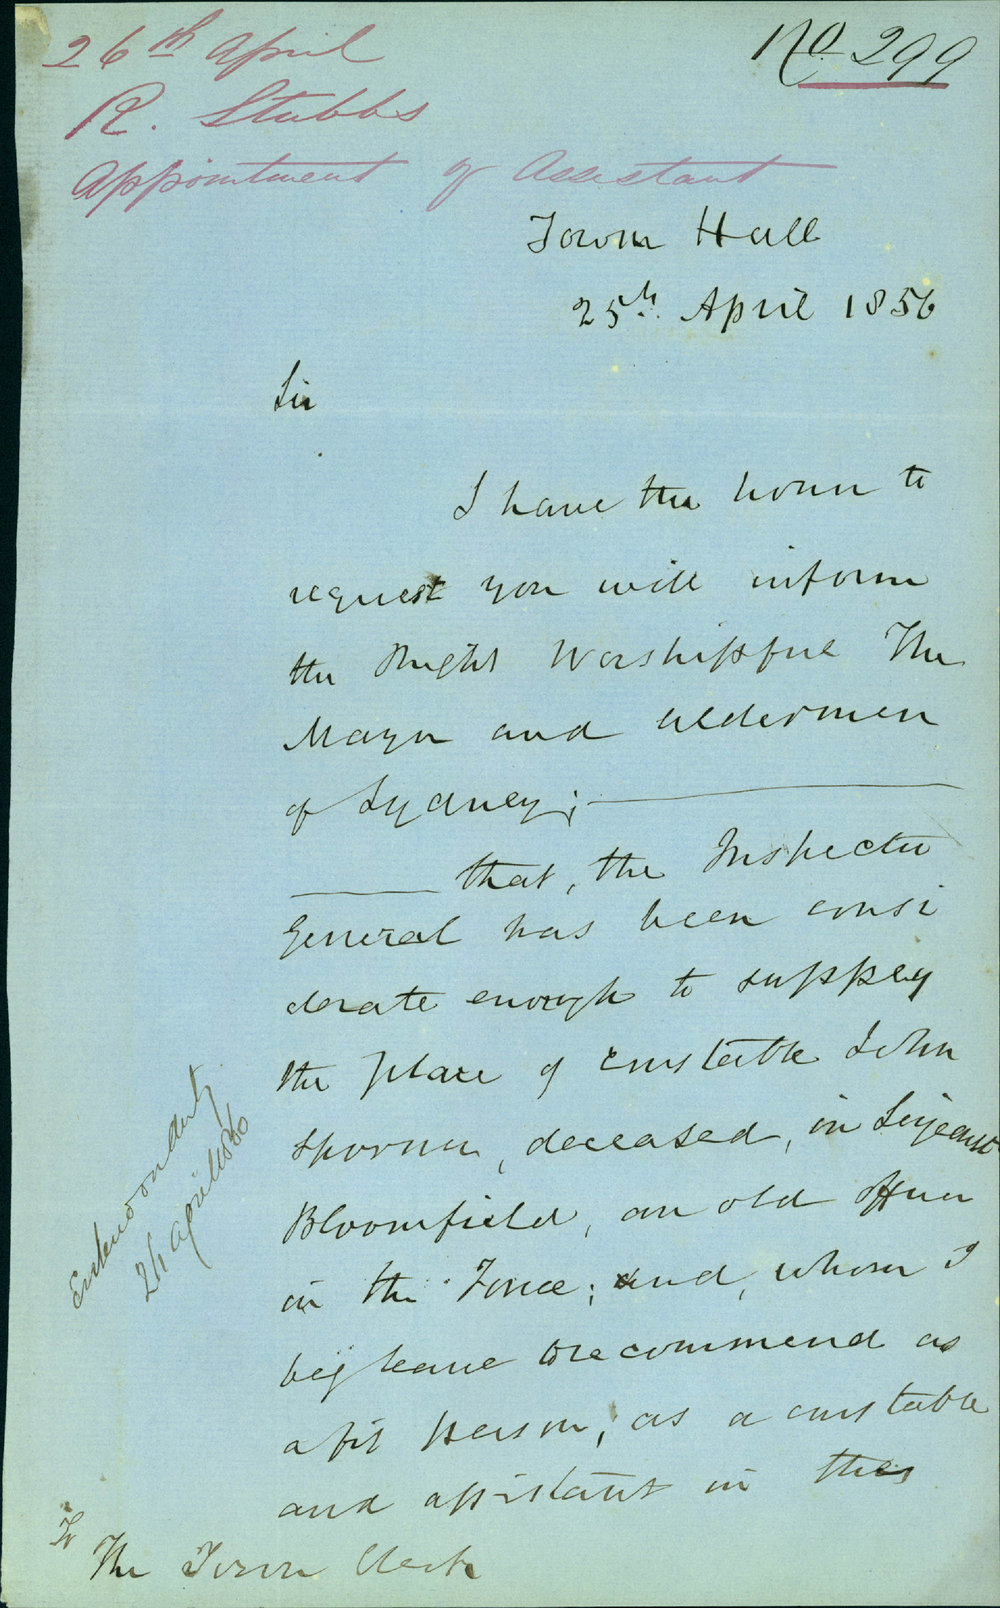 26th April
R. Stubbs
Appointment of Assistant
No. 299
Town Hall
25th April 1856
Sir
I have the honor to
request you will inform
the Right Worshipful The
Mayor and Aldermen
of Sydney;
that, the Inspector
General has been consi
derate enough to supply
the place of Constable John
deceased, in Serjeant
Bloomfield, an old Officer
in the Force; and, whom I
beg leave to recommend as
a fit Person, as a Constable
and assistant in this
To
The Town Clerk
24 April 1856